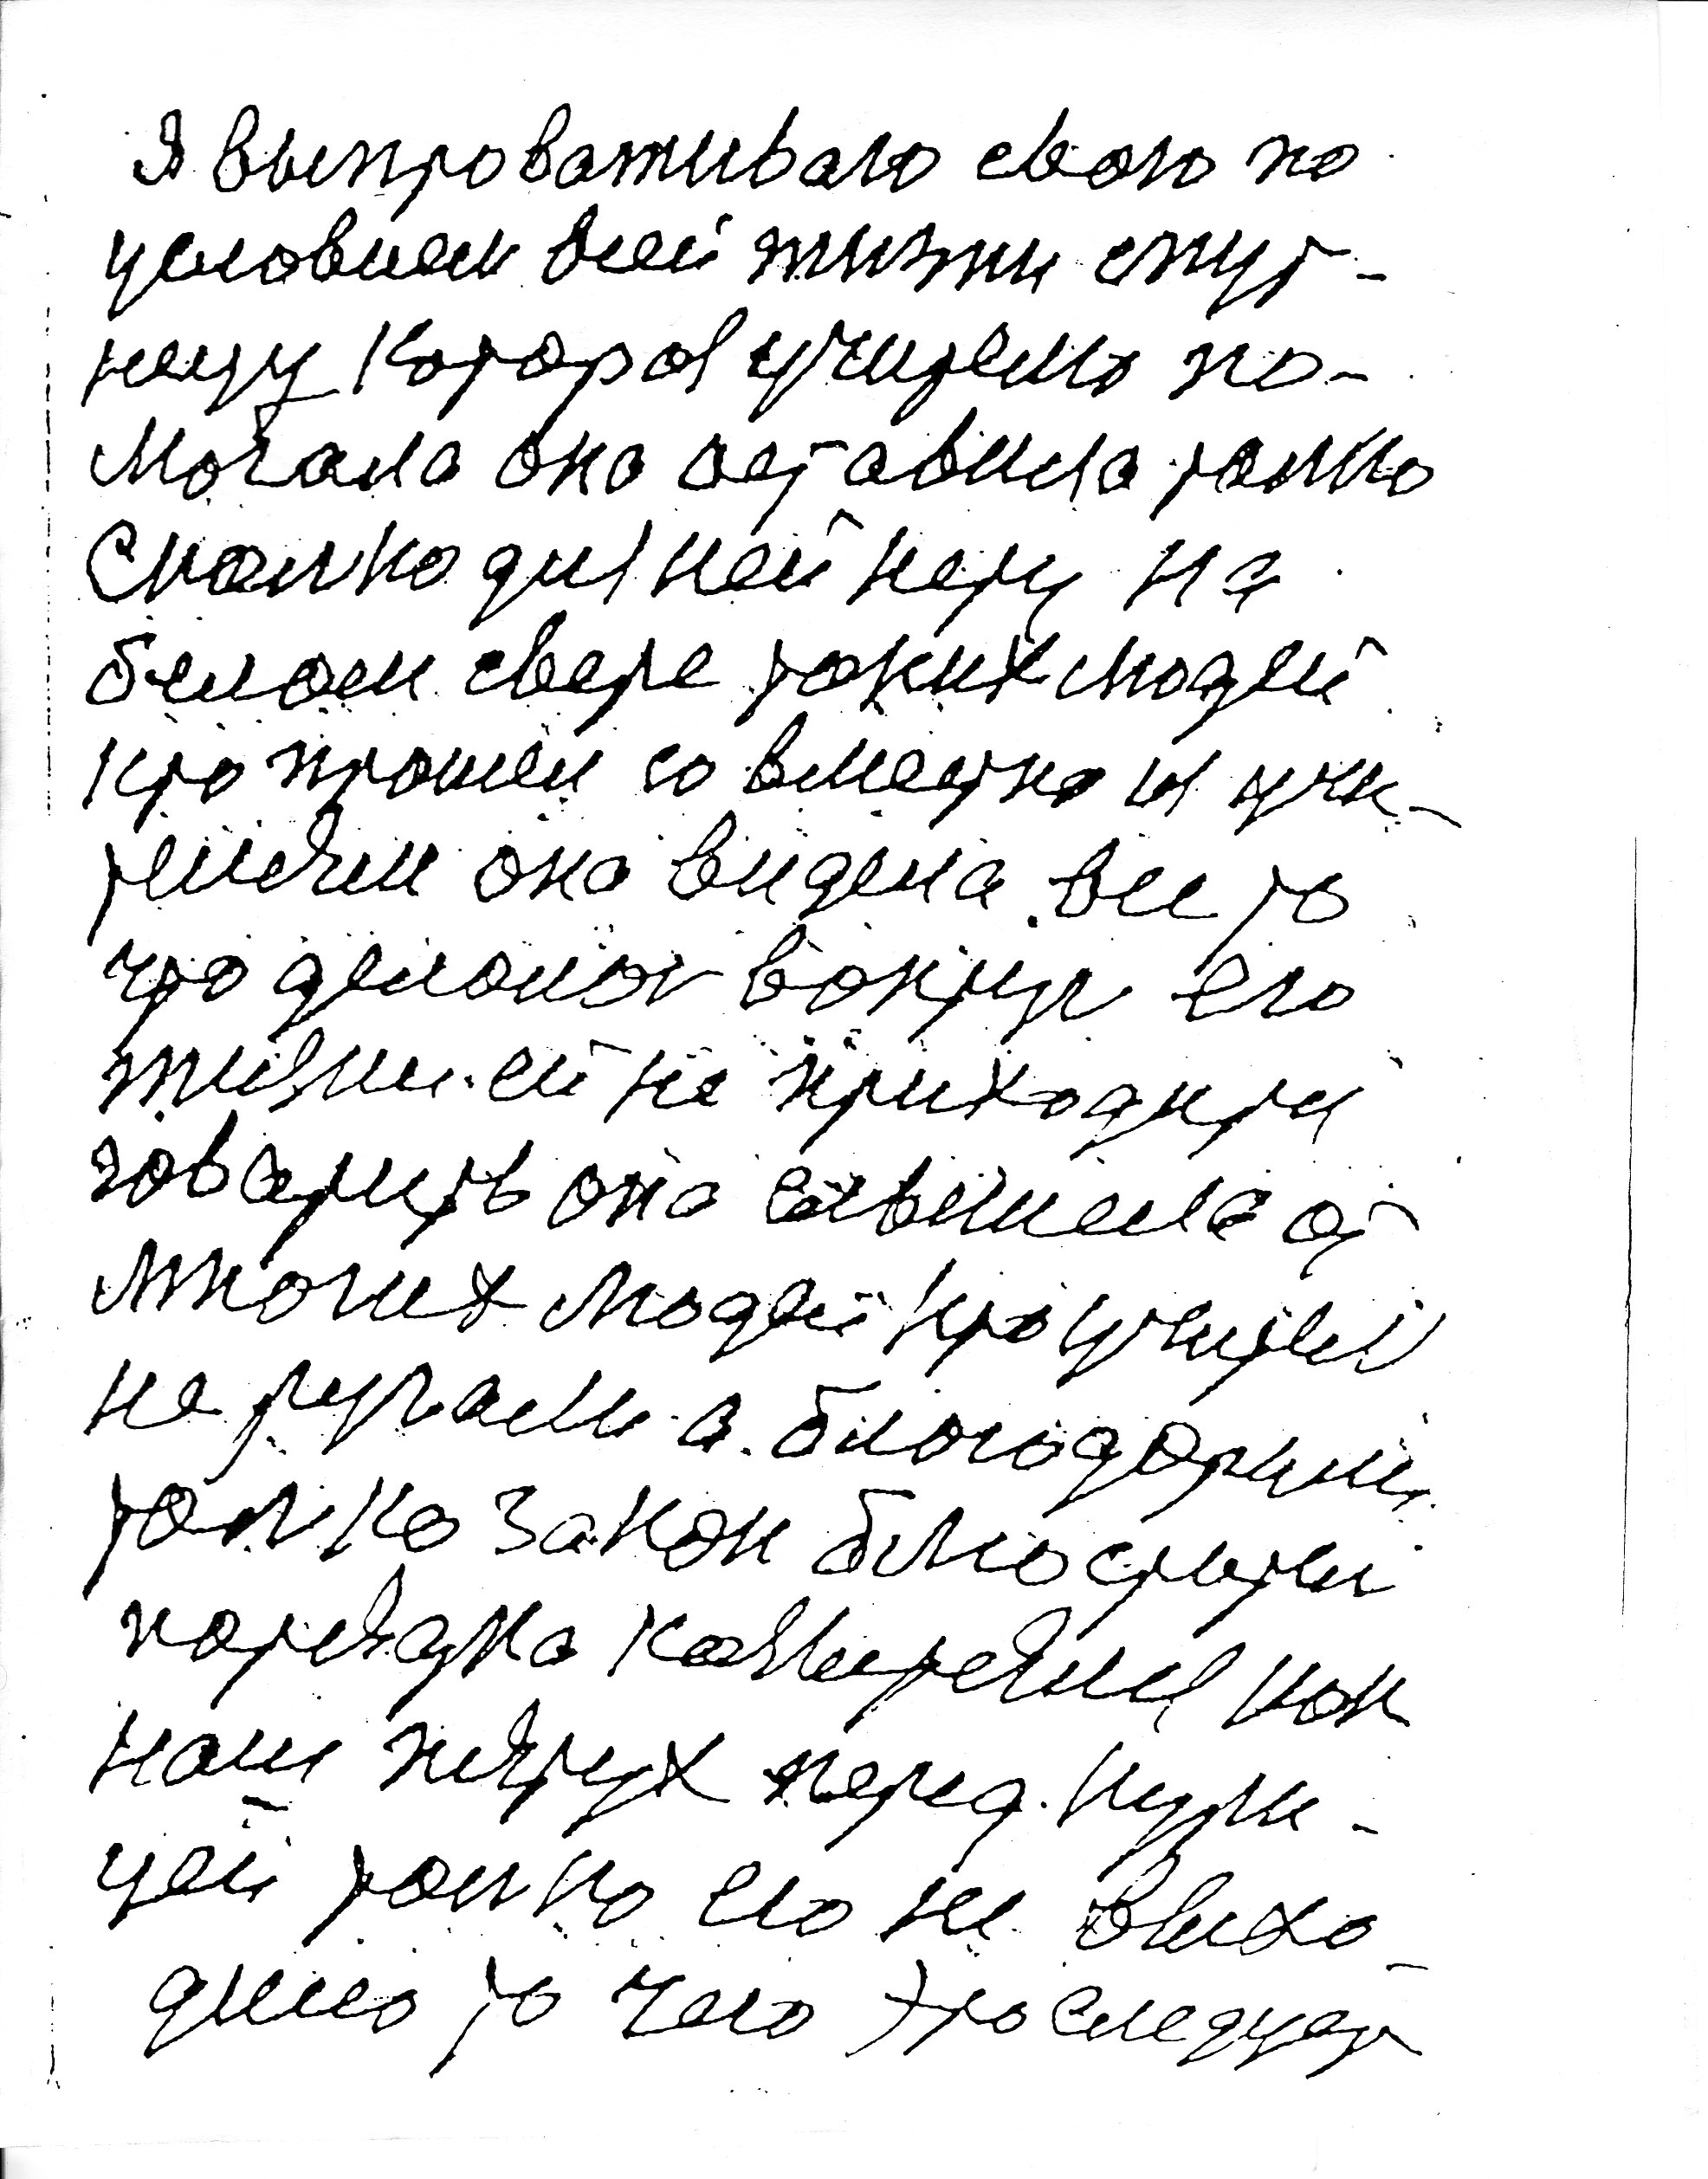 Я выпроваживаю свою по
условием всей жизни спут-
ницу которая учителю по-
могала она оставила толко
сколко для ней нету на
белом свете таких людей
кто прошел совместно и учи-
телем она видела все то
что делалос вокруг его
жизни ей не приходится
говерить она слышела от
многих людей кто учителя
не ругали а благодарили
толко закон блюстители
порядка косыретися как
наш петух перед кури-
цей толко его не выхо-
дило то чего проследует